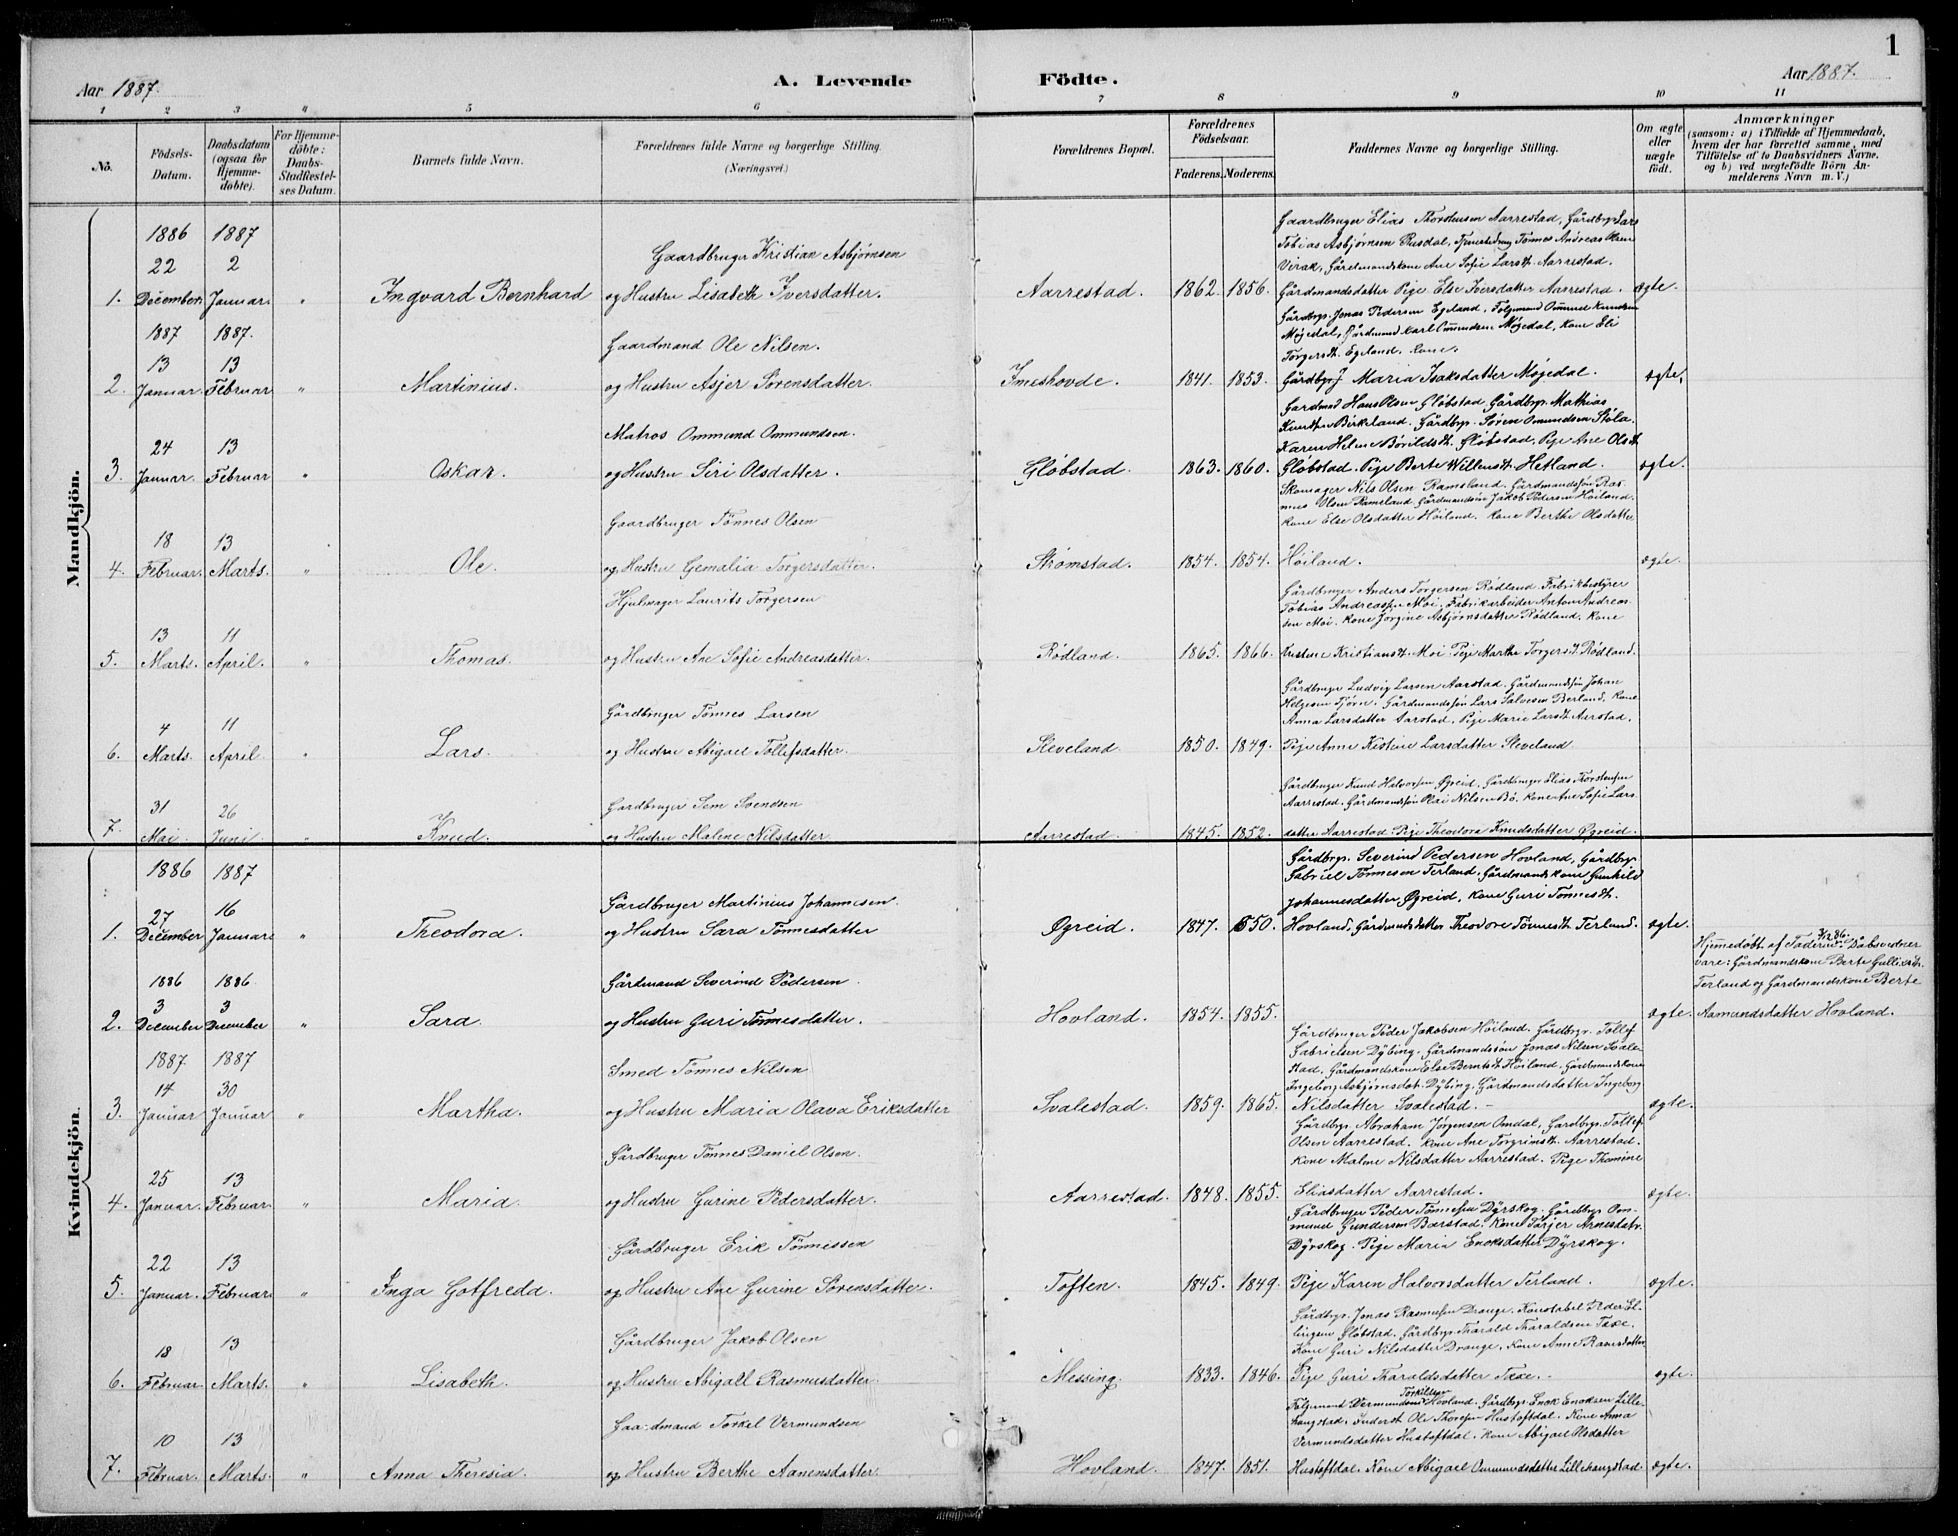 1
Aar 1887.
A. Levende Födte.
Aar 1887.
1 2 3 " 5 6 7 8 9 10 11
No.
Födsels-
Datum.
Daabsdatum
(ogsaa for
Hjemme-
döbte).
For Hjemme-
döbte:
Daabs-
Stadfæstel-
ses Datum.
Barnets fulde Navn.
Forældrenes fulde Navne og borgerlige Stilling.
(Næringsvei.)
Forældrenes Bopæl.
Forældrenes
Födselsaar.
Faderens. Moderens.
Faddernes Navne og borgerlige Stilling.
Om ægte
eller
uægte
födt.
Anmærkninger
(saasom: a) i Tilfælde af Hjemmedaab,
hvem der har forrettet samme, med
Tilföielse af to Daabsvidners Navne,
og b) ved uægtefödte Börn An-
melderens Navn m. V.)
Mandkjön.
1886 1887
22 2
1. December. Januar. " Ingvard Bernhard
Gaardbruger Kristian Asbjørnsen
og Hustru Lisabeth Iversdatter.
Aarrestad. 1862. 1856.
Gaardbruger Elias Thorstensen Aarrestad, Gårdbrgr Lars
Tobias Asbjørnsen Rusdal, Tjenestedreng Tønnes Andreas Olsen
Virak, Gårdmandskone Ane Sofie Larsdt. Aarrestad.
Gårdmandsdatter Pige Else Iversdatter Aarrestad.
ægte.
1887 1887.
13 13
2. Januar. Februar. " Martinius.
Gaardmand Ole Nilsen.
og Hustru Asjer Sørensdatter.
Imeshovde. 1841. 1853.
Gårdbrgr. Jonas Pedersen Egeland, Folgemand Ommund Knudsen
Møgedal, Gårdmand Karl Ommundsen Møgedal, Kone Eli
Torgersdt. Egeland. Kone.
Maria Isaksdatter Møgedal.
ægte,
24 13
3. Januar. Februar " Oskar.
Matros Ommund Ommundsen.
og Hustru Siri Olsdatter.
Gløbstad. 1863. 1860.
Gardmnd Hans Olsen Gløbstad, Gårdbrgr. Mathias
Knudsen Birkeland. Gårdbrgr. Søren Omundsen Støla
Karen Helene Børildsdt. Gløbstad, Pige Ane Olsdt
Gløbstad. Pige Berte Willumsdt. Hetland.
ægte.
18 13
4. Februar. Marts. " Ole.
Gaardbruger Tönnes Olsen
og Hustru Gemalia Torgersdatter.
Strømstad. 1854. 1854.
Skomager Nils Olsen Ramsland. Gårdmandssøn Ras-
mus Olsen Ramsland. Gårdmandssøn Jakob Pedersen Höiland.
Kone Else Olsdatter Höiland. Kone Berthe Olsdatter
Höiland.
ægte.
13 11
5. Marts. April. " Thomas.
Hjulmager Laurits Torgersen
og Hustru Ane Sofie Andreasdatter.
Rødland. 1865. 1866.
Gårdbruger Anders Torgersen Rødland. Fabrikbestyrer
Tobias Andreassen Moi, Fabrikarbeider Anton Andreas-
sen Moi. Kone Jørgine Asbjørnsdatter Rødland, Kone
Kristine Kristiansdt. Moi. Pige Marthe Torgersdt. Rødland.
4 11
6. Marts. April. " Lars.
Gårdbruger Tønnes Larsen
og Hustru Abigael Tollefsdatter.
Sleveland. 1850. 1849.
Gårdbruger Ludvig Larsen Aarstad. Gårdmandssøn Johan
Helgesen Tjørn. Gårdmandssøn Lars Salvesen Berland. Kone
Anna Larsdatter Aarstad, Pige Marie Larsdt. Aarstad.
Pige Anne Kistine Larsdatter Sleveland
31 26
7. Mai. Juni. " Knud.
Gardbruger Sem Svendsen
og Hustru Malene Nilsdatter
Aarrestad. 1845. 1852.
Gårdbruger Knud Halvorsen Øgreid, Gårdbruger Elias Thorstensen
Aarrestad, Gårdmandssøn Olai Nilsen Bö. Kone Ane Sofie Lars
datter Aarrestad. Pige Theodora Knudsdatter Øgreid.
Kvindekjön.
1886 1887
27 16
1. December Januar. " Theodora.
Gårdbruger Martinius Johannesen.
og Hustru Sara Tønnesdatter
Øgreid. 1847. 1850.
Gårdbrgr. Severind Pedersen Hovland, Gårdbrgr
Gabriel Tønnesen Terland, Gårdmandskone Gunhild
Johannesdatter Øgreid, Kone Guri Tønnesdt.
Hovland, Gårdmandsdatter Theodore Tønnesdt. Terland.
ægte.
1886 1886
3 3
2. December December " Sara.
Gårdmand Severind Pedersen
og Hustru Guri Tønnesdatter.
Hovland. 1854. 1855.
ægte.
Hjemmedøbt af Faderen 3/12 86. Dåbsvidner
vare: Gårdmandskone Berte Gulliksdt.
Terland og Gårdmandskone Berte
Aamundsdatter Hovland.
1887 1887
14 30
3. Januar Januar " Martha.
Smed Tønnes Nilsen
og Hustru Maria Olava Eriksdatter
Svalestad. 1859. 1865.
Gårdbruger Peder Jakobsen Höiland. Gårdbrgr. Tollef
Gabrielsen Dÿbing, Gårdmandssön Jonas Nilsen Svale-
stad, Gårdmandskone Else Berntsdt Höiland, Gårdmandskone
Ingeborg Asbjørnsdat. Dÿbing, Gårdmandsdatter Ingeborg
Nilsdatter Svalestad. –
ægte.
25 13
4. Januar. Februar. " Maria.
Gårdbruger Tønnes Daniel Olsen.
og Hustru Gurine Pedersdatter.
Aarrestad. 1848. 1855.
Gårdbrgr. Abraham Jørgensen Omdal, Gårdbrgr. Tollef
Olsen Aarrestad. Kone Ane Torgrimsdt. Aarrestad.
Kone Malene Nilsdatter Aarrestad. Pige Thomine
Eliasdatter Aarrestad.
ægte.
22 13
5. Januar. Februar. " Inga Gotfreda.
Gårdbruger Erik Tønnessen
og Hustru Ane Gurine Sørensdatter.
Toften. 1845. 1849.
Gårdbruger Peder Tønnesen Dÿrskog. Gårdbrgr. Om-
mund Gundersen Barstad. Kone Tarjer Arnesdatr.
Dÿrskog. Pige Maria Enoksdatter Dÿrskog.
Pige Karen Halvorsdatter Terland.
ægte.
18 13
6. Februar. Marts. " Lisabeth.
Gårdbruger Jakob Olsen
og Hustru Abigall Rasmusdatter.
Messing. 1833. 1846.
Gårdbrgr. Jonas Rasmussen Drange. Konstabel Peder El-
lingsen Gløbstad. Gårdbrgr. Tharald Tharaldsen Taxe.
Kone Guri Nilsdatter Drange, Kone Anne Rasmusdatter
Pige Guri Tharaldsdatter Taxe.
ægte.
10 13
7. Februar. Marts. " Anna Theresia.
Gaardmand Torkel Vermundsen
og Hustru Berthe Aanensdatter.
Hovland. 1847. 1851.
Følgemand Vermund Torkildsen Hovland. Gårdbrgr. Enok Enoksen Lille
haugstad. Inderst Ole Thorsen Hustoftdal. Kone Anna
Vermundsdatter Hustoftdal. Kone Abigael Olsdatter
Hustoftdal. Kone Abigael Ommundsdatter Lillehaugstad.
ægte.